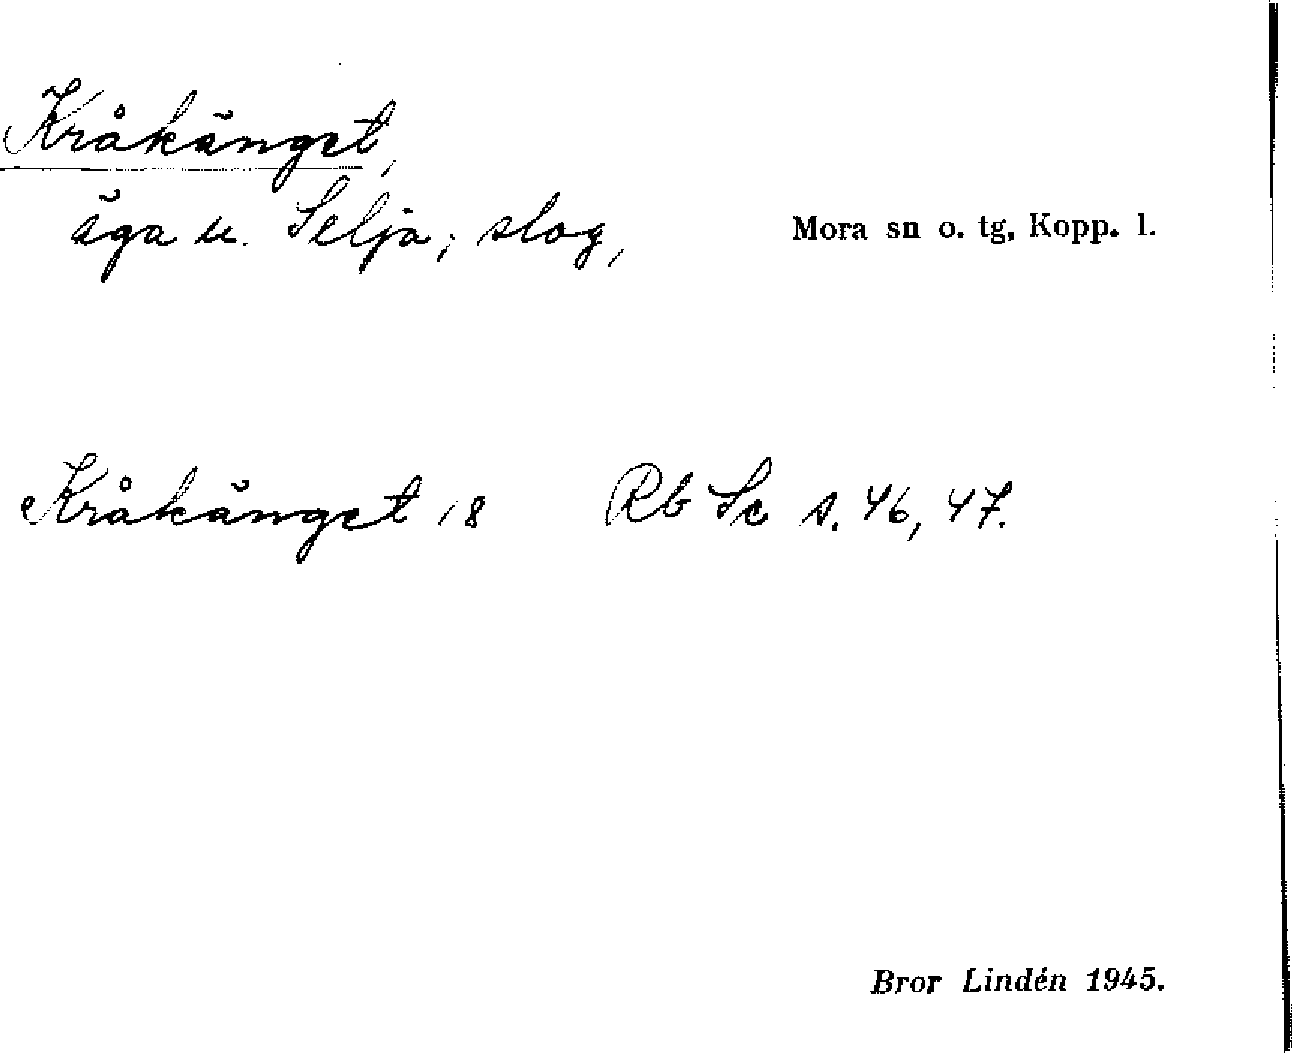 Kråkänget,
äga u. Selja; slog, Mora sn o. tg, Kopp. l.
Kråkänget 18 Rb Se s. 46, 47.
Bror Lindén 1945.